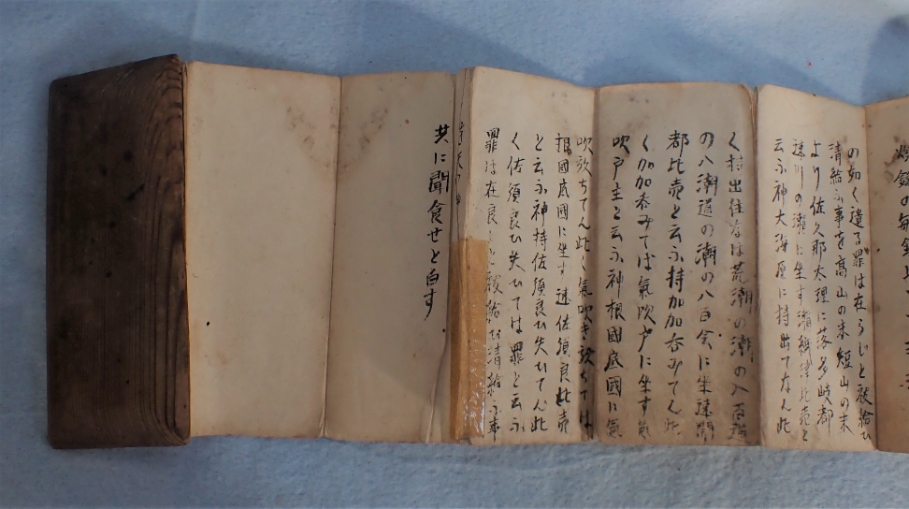 の如く遺る罪は在らじと祓給ひ
清給ふ事を高山の末短山の末
より佐久那太理に落多岐都
速川の瀬に坐す瀬織津比売と
云ふ神大海原に持出でなん此
く持出往なば荒潮の潮の八百路
の八潮道の潮の八百会に坐速開
都比売と云ふ持加加呑みてん此
く加加呑みてば氣吹戸に坐す氣
吹戸主と云ふ神根國底國に氣
吹放ちてん此く氣吹き放ちては
根國底國に坐す速佐須良比売
と云ふ神持佐須良ひ失ひてん此
く佐須良ひ失ひては罪と云ふ
罪は在良じと祓給ひ清給ふ事
共に聞食せと白す